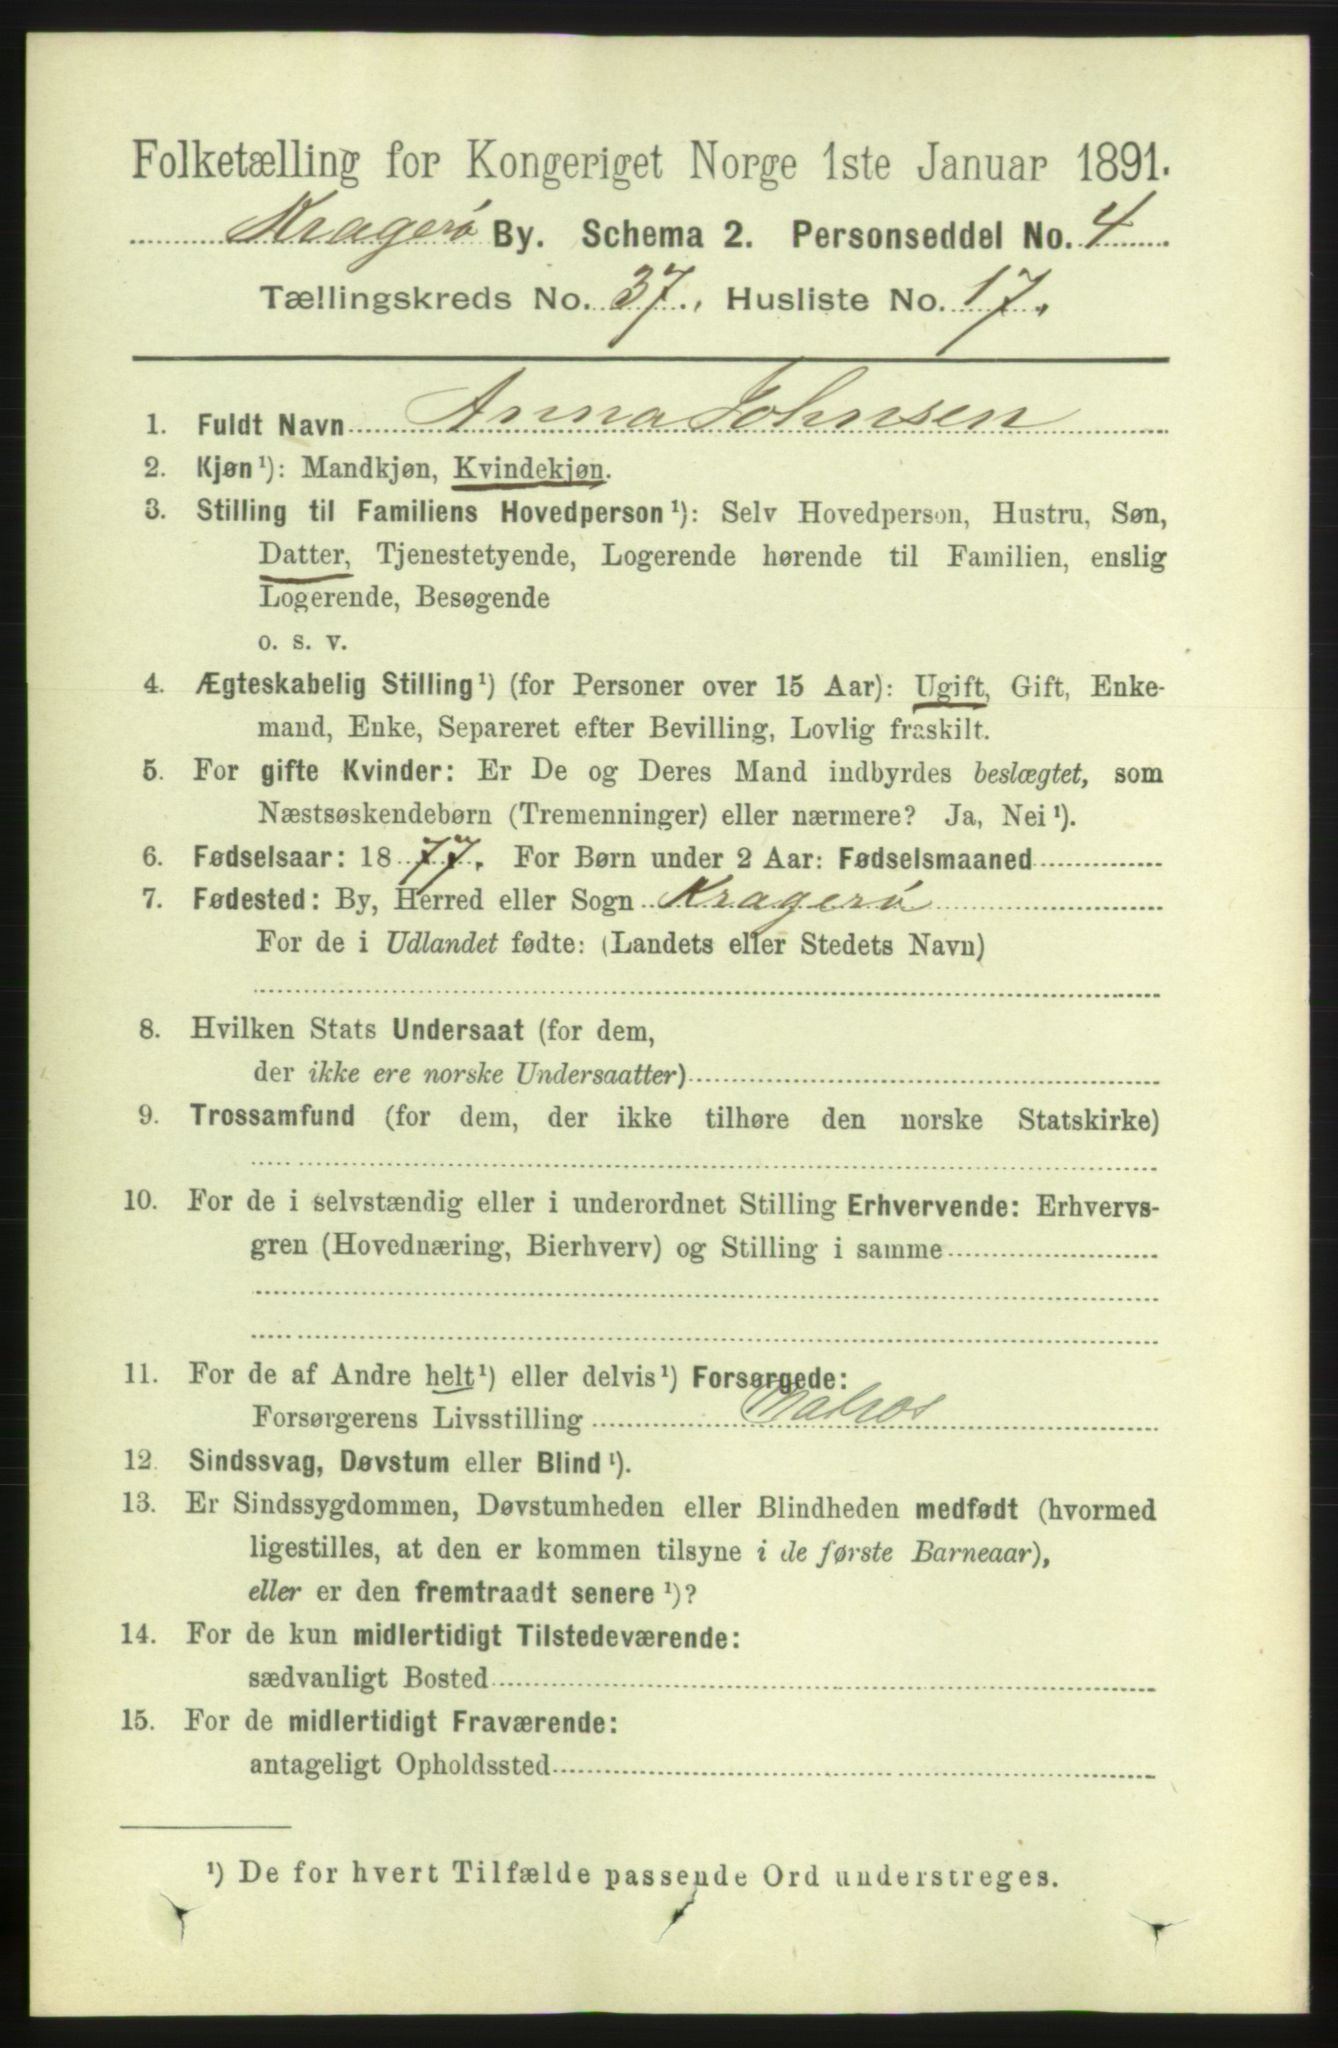 Folketælling for Kongeriget Norge 1ste Januar 1891.
Kragerø By. Schema 2. Personseddel No. 4
Tællingskreds No. 37., Husliste No. 17.
1. Fuldt Navn Anna Johnsen
2. Kjøn ¹): Mandkjøn, Kvindekjøn.
3. Stilling til Familiens Hovedperson ¹): Selv Hovedperson, Hustru, Søn,
Datter, Tjenestetyende, Logerende hørende til Familien, enslig
Logerende, Besøgende
o. s. v.
4. Ægteskabelig Stilling ¹) (for Personer over 15 Aar): Ugift, Gift, Enke-
mand, Enke, Separeret efter Bevilling, Lovlig fraskilt.
5. For gifte Kvinder: Er De og Deres Mand indbyrdes beslægtet, som
Næstsøskendebørn (Tremenninger) eller nærmere? Ja, Nei ¹).
6. Fødselsaar: 1877. For Børn under 2 Aar: Fødselsmaaned
7. Fødested: By, Herred eller Sogn Kragerø
For de i Udlandet fødte: (Landets eller Stedets Navn)
8. Hvilken Stats Undersaat (for dem,
der ikke ere norske Undersaatter)
9. Trossamfund (for dem, der ikke tilhøre den norske Statskirke)
10. For de i selvstændig eller i underordnet Stilling Erhvervende: Erhvervs-
gren (Hovednæring, Bierhverv) og Stilling i samme
11. For de af Andre helt ¹) eller delvis ¹) Forsørgede:
Forsørgerens Livsstilling Matros
12. Sindssvag, Døvstum eller Blind ¹).
13. Er Sindssygdommen, Døvstumheden eller Blindheden medfødt (hvormed
ligestilles, at den er kommen tilsyne i de første Barneaar),
eller er den fremtraadt senere ¹)?
14. For de kun midlertidigt Tilstedeværende:
sædvanligt Bosted
15. For de midlertidigt Fraværende:
antageligt Opholdssted
¹) De for hvert Tilfælde passende Ord understreges.